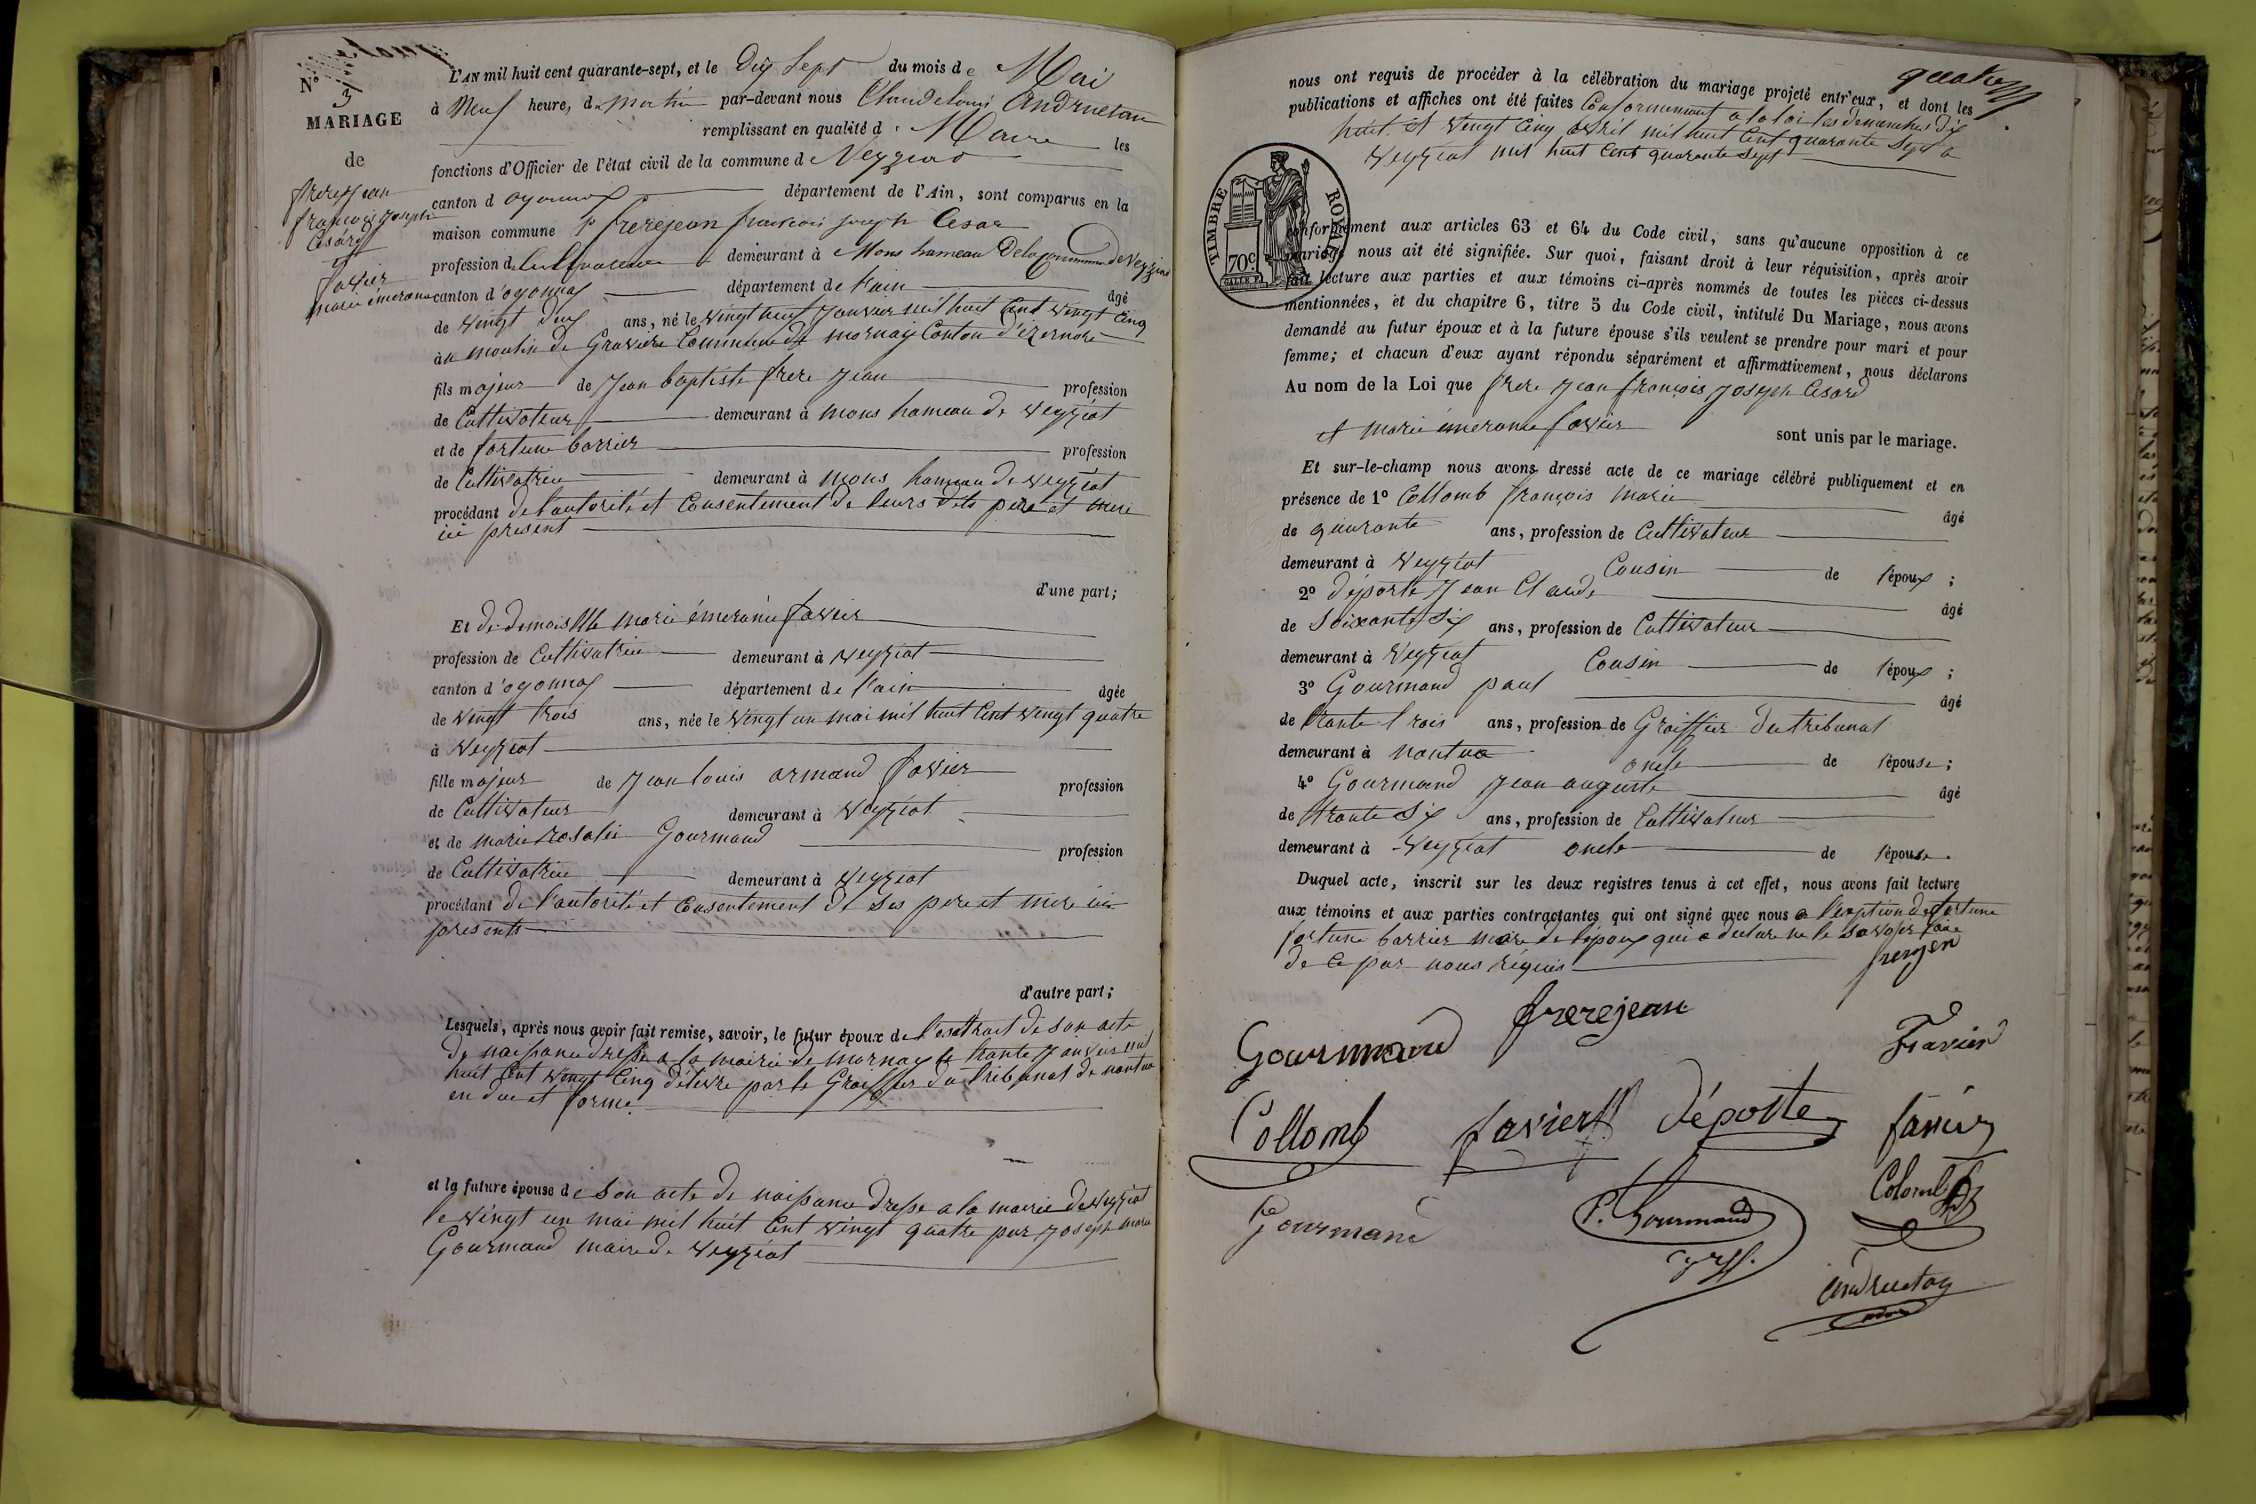 N° 3
MARIAGE
de
frerejean
françois joseph
Césard
favier
marie émeranne
L'AN mil huit cent quarante-sept, et le Dix Sept du mois de Mai
à Neuf heure, du matin par-devant nous Claude Louis Andruetan
remplissant en qualité d Maire les
fonctions d'Officier de l'état civil de la commune de Veyziat
canton d'oyonnax département de l'Ain, sont comparus en la
maison commune frerejean francois joseph Cesar
profession de demeurant à Mons hameau De la Commune de Veyziat
canton d'oyonnax département de l'ain âgé
de vingt deux ans, né le vingt neuf janvier mil huit Cent vingt Cinq
au moulin de Graviere Commune de mornay Conton d'izernore
fils majeur de Jean baptiste frere Jean profession
de Cultivateur demeurant à mons hameau de veyziat
et de fortune barrier profession
de Cultivatrice demeurant à mons hameau de veyziat
procédant de l'autorité et Consentement de leurs dits pere et mere
ici présent
d'une part;
Et de demoiselle marie émeranne favier
profession de Cultivatrice demeurant à veyziat
canton d'oyonnax département de l'ain âgée
de vingt trois ans, née le vingt un mai mil huit Cent vingt quatre
à veyziat
fille majeur de Jean louis armand favier profession
de Cultivateur demeurant à veyziat
et de marie rosalie Gourmand profession
de Cultivatrice demeurant à veyziat
procédant de l'autorité et Consentement de ses pere et mere ici
présents
d'autre part;
Lesquels, après nous avoir fait remise, savoir, le futur époux de l'extrait de son acte
de naissance dressé a la mairie de mornay le trante janvier mil
huit Cent vingt Cinq délivré par le Graiffier du tribunal de nantua
en due et forme
et la future épouse de son acte de naissance dressé a la mairie de veyziat
le vingt un mai mil huit Cent vingt quatre par joseph marie
Gourmand maire de veyziat
nous ont requis de procéder à la célébration du mariage projeté entr'eux, et dont les
publications et affiches ont été faites Conformement a la loi les dimanches dix
huit et vingt Cinq avril mil huit Cent quarante sept a
veyziat mil huit Cent quarante sept
TIMBRE ROYAL
70c
conformément aux articles 63 et 64 du Code civil, sans qu'aucune opposition à ce
mariage nous ait été signifiée. Sur quoi, faisant droit à leur réquisition, après avoir
fait lecture aux parties et aux témoins ci-après nommés de toutes les pièces ci-dessus
mentionnées, et du chapitre 6, titre 5 du Code civil, intitulé Du Mariage, nous avons
demandé au futur époux et à la future épouse s'ils veulent se prendre pour mari et pour
femme; et chacun d'eux ayant répondu séparément et affirmativement, nous déclarons
Au nom de la Loi que frere jean françois joseph Césard
et marie émeranne favier sont unis par le mariage.
Et sur-le-champ nous avons dressé acte de ce mariage célébré publiquement et en
présence de 1° Collomb françois marie âgé
de quarante ans, profession de Cultivateur
demeurant à veyziat Cousin de l'époux;
2° déporte Jean Claude âgé
de Soixante six ans, profession de Cultivateur
demeurant à veyziat Cousin de l'époux;
3° Gourmand paul âgé
de trante trois ans, profession de Graiffier du tribunal
demeurant à nantua oncle de l'épouse;
4° Gourmand Jean auguste âgé
de trante six ans, profession de Cultivateur
demeurant à veyziat oncle de l'épouse.
Duquel acte, inscrit sur les deux registres tenus à cet effet, nous avons fait lecture
aux témoins et aux parties contractantes qui ont signé avec nous a l'exption de fortune
fortune barrier mere de l'époux qui a declaré ne le savoir faire
de Ce par nous requis
frerejean
Gourmand
Favier
Collomb
favier
déporte
favier
Gourmand
P. Gourmand
Colomb
Andruetan